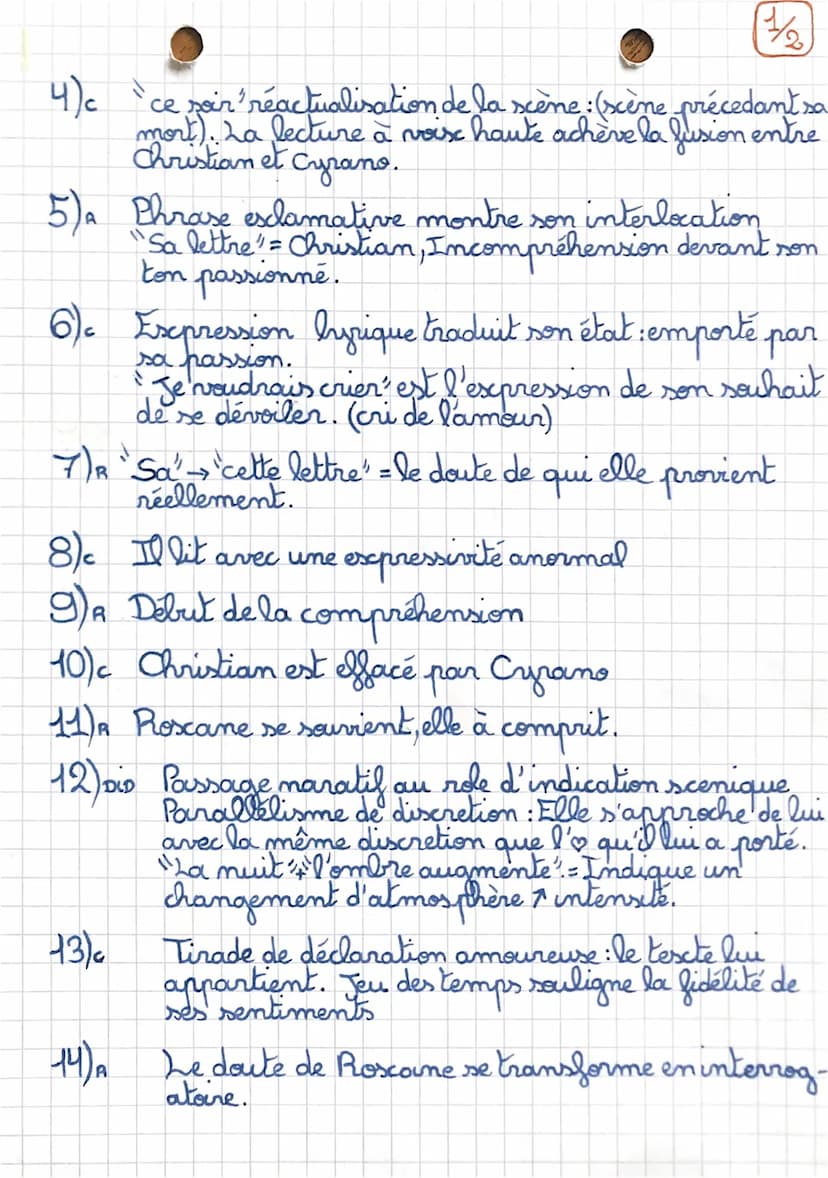 1/2
4)c "ce soir" réactualisation de la scène : (scène précedant sa
mort). La lecture à voix haute achève la fusion entre
Christian et Cyrano.
5)R Phrase exclamative montre son interlocation
"Sa lettre" = Christian, Incompréhension devant son
ton passionné.
6)c Expression lyrique traduit son état : emporté par
sa passion.
"Je voudrais crier" est l'expression de son souhait
de se dévoiler. (cri de l'amour)
7)R "Sa" → "cette lettre" = le doute de qui elle provient
réellement.
8)c Il lit avec une expressivité anormal
9)R Début de la compréhension
10)c Christian est effacé par Cyrano
11)R Roxane se souvient, elle à comprit.
12)DID Passage narratif au role d'indication scenique
Parallélisme de discretion : Elle s'approche de lui
avec la même discretion que l'♡ qu'il lui a porté.
"La nuit" + "l'ombre augmente". = Indique un
changement d'atmosphère ↗ intensité.
13)c Tirade de déclaration amoureuse : le texte lui
appartient. Jeu des temps souligne la fidélité de
ses sentiments
14)R Le doute de Roxane se transforme en interrog-
atoire.